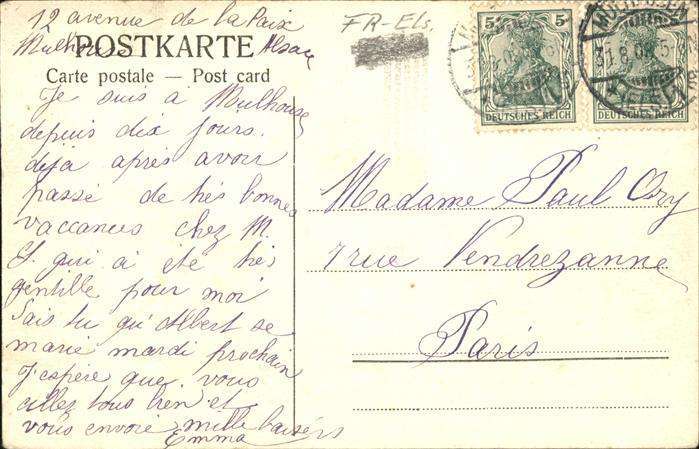 12 avenue de la Paix
Mulhouse Alsace
FR-Els.
POSTKARTE
Carte postale — Post card
5 5
DEUTSCHES REICH
DEUTSCHES REICH
MÜLHAUSEN
31.8.08.5
(ELS.)
Je suis à Mulhouse
depuis dix jours.
déjà après avoir
passé de très bonnes
vaccances chez M.
qui à été très
gentille pour moi
Sais tu qu'Albert se
marie mardi prochain
J'espère que vous
allez tous bien et
vous envoie mille baisers
Emma
Madame Paul Ory
7 rue Vendrezanne
Paris